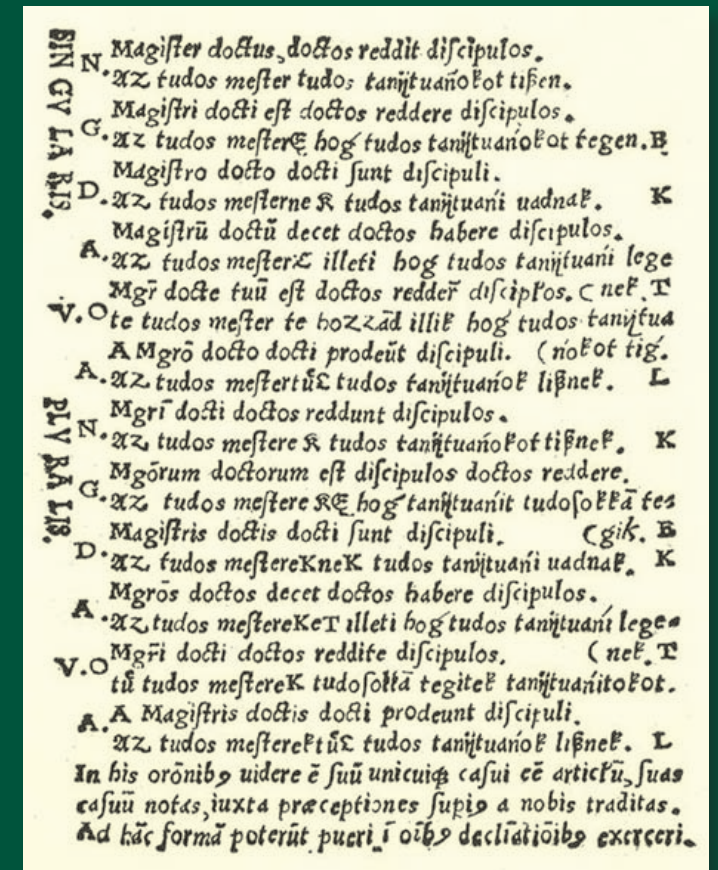 SIN GV LA RIS.
N. Magiſter doctus, doctos reddit diſcipulos.
AZ tudos meſter tudos tanĳtuańokot tißen.
G. Magiſtri docti eſt doctos reddere diſcipulos.
AZ tudos meſterE hog tudos tanĳtuańokot tegen. E
D. Magiſtro docto docti ſunt diſcipuli.
AZ tudos meſterne K tudos tanĳtuańi uadnak. K
A. Magiſtrū doctū decet doctos habere diſcipulos.
AZ tudos meſterT illeti hog tudos tanĳtuańi lege
V. O Mgr̄ docte tuū eſt doctos redder̄ diſcipłos. (nek. T
te tudos meſter te hozzād illik hog tudos tanĳtua
A. A Mgrō docto docti prodeūt diſcipuli. (ńokot tig.
AZ tudos meſtertűL tudos tanĳtuańok lißnek. L
PLV RA LIS.
N. Mgrī docti doctos reddunt diſcipulos.
AZ tudos meſtere K tudos tanĳtuańokot tißnek. K
G. Mgōrum doctorum eſt diſcipulos doctos reddere.
AZ tudos meſtere KE hog tanĳtuańit tudoſokkā tea
D. Magiſtris doctis docti ſunt diſcipuli. (gik. E
AZ tudos meſtereKneK tudos tanĳtuańi uadnak. K
A. Mgrōs doctos decet doctos habere diſcipulos.
AZ tudos meſtereKeT illeti hog tudos tanĳtuańi lege
V. O Mgr̄i docti doctos reddite diſcipulos. (nek. T
tű tudos meſtereK tudoſokkā tegitek tanĳtuańitokot.
A. A Magiſtris doctis docti prodeunt diſcipuli.
AZ tudos meſterektűL tudos tanĳtuańok lißnek. L
In his orōnibꝯ uidere ē ſuū unicuiqꝫ caſui eē articłū, ſuas
caſuū notas, iuxta præceptiones ſupiꝯ a nobis traditas.
Ad hāc formā poterūt pueri ī oībꝯ decliātiōibꝯ exerceri.